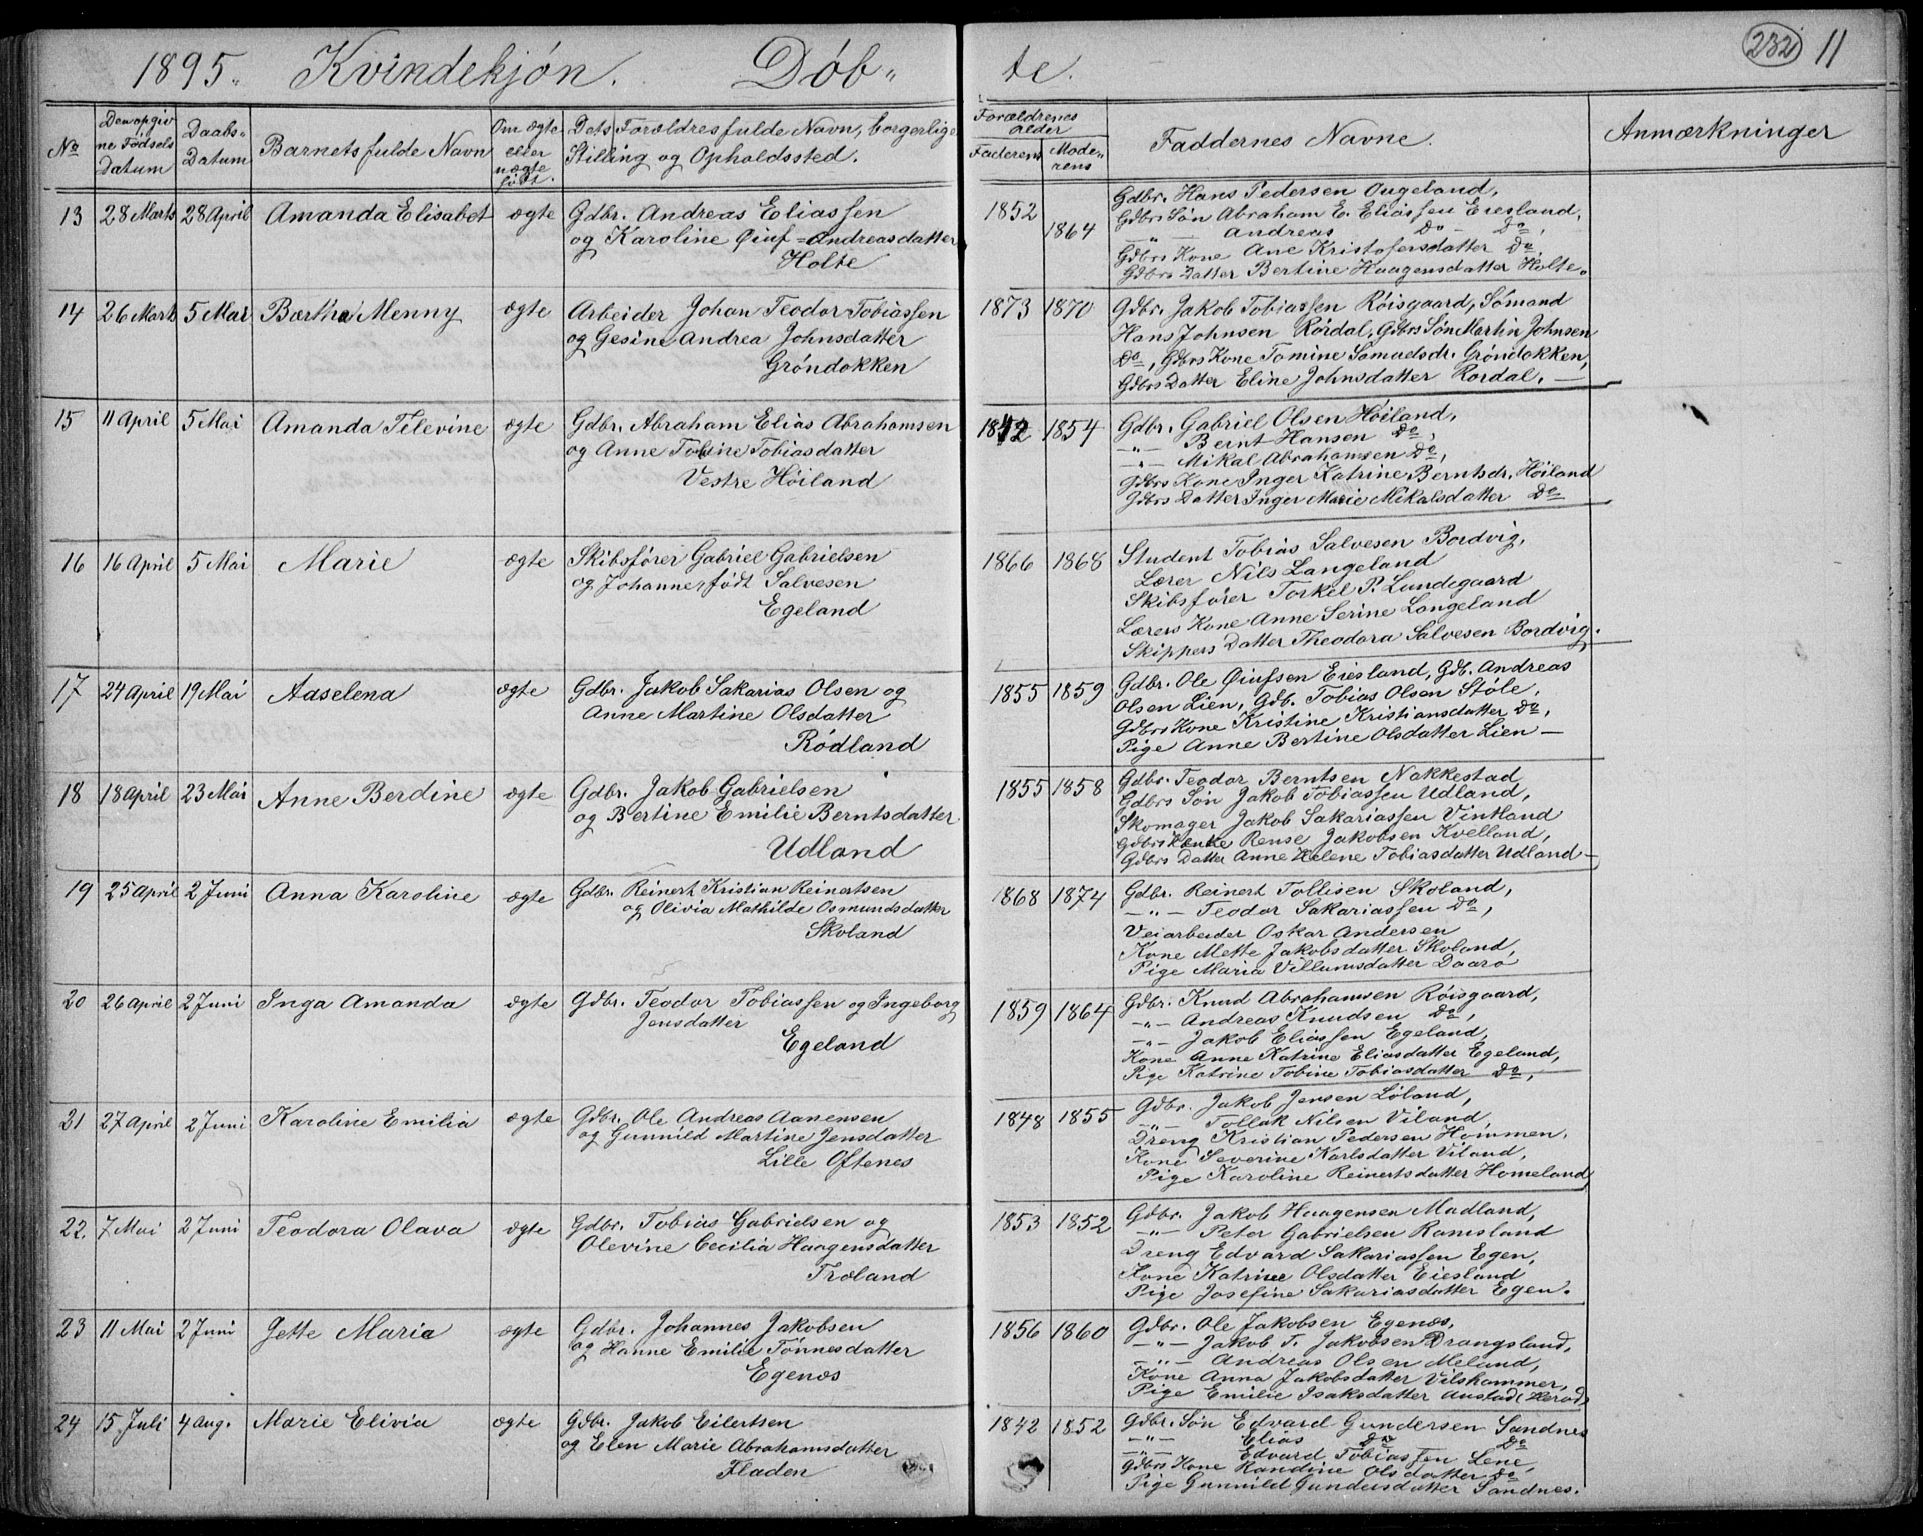 1895. Kvindekjón. Döb- te. 232 11
No Den opgivne Födsels Datum Daabs-Datum Barnets fulde Navn Om ægte eller uægte född. Dets Forældres fulde Navn, borgerlige Stilling og Opholdssted. Forældrenes alder Faderens Moderens Faddernes Navne. Anmærkninger
13 28 Marts 28 April Amanda Elisabet ægte Gdbr. Andreas Eliassen
og Karoline Öiuf-Andreasdatter
Holte
1852 1864 Gdbr. Hans Pedersen Ougeland,
Gdbrs Søn Abraham E. Eliassen Eiesland,
—"— Andreas Do - Do,
Gdbrs Kone Ane Kristofersdatter Do,
Gdbrs Datter Bertine Haagensdatter Holte.
14 26 Marts 5 Mai Bærtha Menny ægte Arbeider Johan Teodor Tobiassen
og Gesine Andrea Johnsdatter
Gröndokken
1873 1870 Gdbr. Jakob Tobiassen Röisgaard, Sömand
Hans Johnsen Rördal, Gdbrs Søn Martin Johnsen
Do, Gdbrs Kone Tomine Samuelsdr. Gröndokken,
Gdbrs Datter Eline Johnsdatter Rordal. —
15 11 April 5 Mai Amanda Televine ægte Gdbr. Abraham Elias Abrahamsen
og Anne Tobine Tobiasdatter
Vestre Höiland
1842 1854 Gdbr. Gabriel Olsen Höiland,
—"— Bernt Hansen Do,
—"— Mikal Abrahamsen Do,
Gdbrs Kone Inger Katrine Berntsdr. Höiland
Gdbrs Datter Inger Marie Mikalsdatter Do
16 16 April 5 Mai Marie ægte Skibsförer Gabriel Gabrielsen
og Johanne, födt Salvesen
Egeland
1866 1868 Student Tobias Salvesen Bordvig,
Lærer Nils Langeland
Skibsförer Torkel P. Lundegaard
Lærers Kone Anne Serine Langeland
Skippers Datter Theodora Salvesen Bordvig.
17 24 April 19 Mai Aaselena ægte Gdbr. Jakob Sakarias Olsen og
Anne Martine Olsdatter
Rödland
1855 1859 Gdbr. Ole Öiufsen Eiesland, Gdb. Andreas
Olsen Lien, Gdb. Tobias Olsen Stöle,
Gdbrs Kone Kristine Kristiansdatter Do,
Pige Anne Bertine Olsdatter Lien —
18 18 April 23 Mai Anne Berdine ægte Gdbr. Jakob Gabrielsen
og Bertine Emilie Berntsdatter
Udland
1855 1858 Gdbr. Teodor Berntsen Nakkestad
Gdbrs Søn Jakob Tobiassen Udland,
Skomager Jakob Sakariassen Vintland
Gdbrs Kone Rense Jakobsen Kvelland,
Gdbrs Datter Anne Helene Tobiasdatter Udland —
19 25 April 2 Juni Anna Karoline ægte Gdbr. Reinert Kristian Reinertsen
og Olivia Mathilde Osmundsdatter
Skoland
1868 1874 Gdbr. Reinert Tollisen Skoland,
—"— Teodor Sakariassen Do,
Veiarbeider Oskar Andersen
Kone Mette Jakobsdatter Skoland,
Pige Maria Villumsdatter Daarö
20 26 April 2 Juni Inga Amanda ægte Gdbr. Teodor Tobiassen og Ingeborg
Jensdatter
Egeland
1859 1864 Gdbr. Knud Abrahamsen Röisgaard,
—"— Andreas Knudsen Do,
—"— Jakob Eliassen Egeland,
Kone Anne Katrine Eliasdatter Egeland,
Pige Katrine Tobine Tobiasdatter Do,
21 27 April 2 Juni Karoline Emilia ægte Gdbr. Ole Andreas Aanensen
og Gunnild Martine Jensdatter
Lille Oftenes
1848 1855 Gdbr. Jakob Jensen Löland,
—"— Tollak Nilsen Viland,
Dreng Kristian Pedersen Hommen,
Kone Severine Karlsdatter Viland,
Pige Karoline Reinertsdatter Homeland,
22. 7 Mai 2 Juni Teodora Olava ægte Gdbr. Tobias Gabrielsen og
Olevine Cecilia Haagensdatter
Træland
1853 1852 Gdbr. Jakob Haagensen Madland,
—"— Peter Gabrielsen Ramsland
Dreng Edvard Sakariassen Egen,
Kone Katrine Olsdatter Eiesland
Pige Josefine Sakariasdatter Egen.
23 11 Mai 2 Juni Jette Maria ægte Gdbr. Johannes Jakobsen
og Hanne Emilie Tönnesdatter
Egenæs
1856 1860 Gdbr. Ole Jakobsen Egenæs,
—"— Jakob T. Jakobsen Drangsland,
—"— Andreas Olsen Meland,
Kone Anna Jakobsdatter Vilshammer,
Pige Emilie Isaksdatter Austad (Herad)
24 15 Juli 4 Aug. Marie Elivia ægte Gdbr. Jakob Eilertsen
og Elen Marie Abrahamsdatter
Fladen
1842 1852 Gdbr. Søn Edvard Gundersen Sandnes
—"— Elias Do Do
—"— Edvard Tobiassen Lene,
Gdbrs Kone Randine Olsdatter Do,
Pige Gunnild Gundersdatter Sandnes.